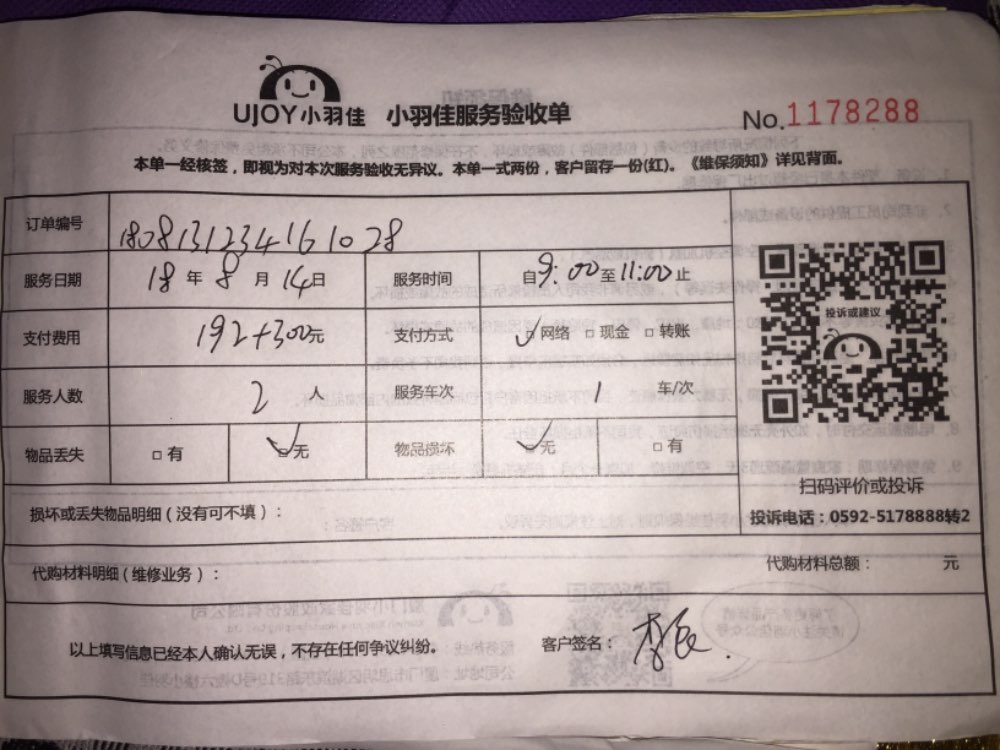 UJOY小羽佳 小羽佳服务验收单 No.1178288
本单一经核签，即视为对本次服务验收无异议。本单一式两份，客户留存一份(红)。《维保须知》详见背面。
订单编号 1808131234161028
服务日期 18年8月14日 服务时间 自9:00至11:00止
支付费用 192+300元 支付方式 ☑网络 □现金 □转账
投诉或建议
服务人数 2人 服务车次 1车/次
物品丢失 □有 ☑无 物品损坏 ☑无 □有
扫码评价或投诉
损坏或丢失物品明细(没有可不填)：
投诉电话：0592-5178888转2
代购材料明细(维修业务)： 代购材料总额： 元
以上填写信息已经本人确认无误，不存在任何争议纠纷。 客户签名：